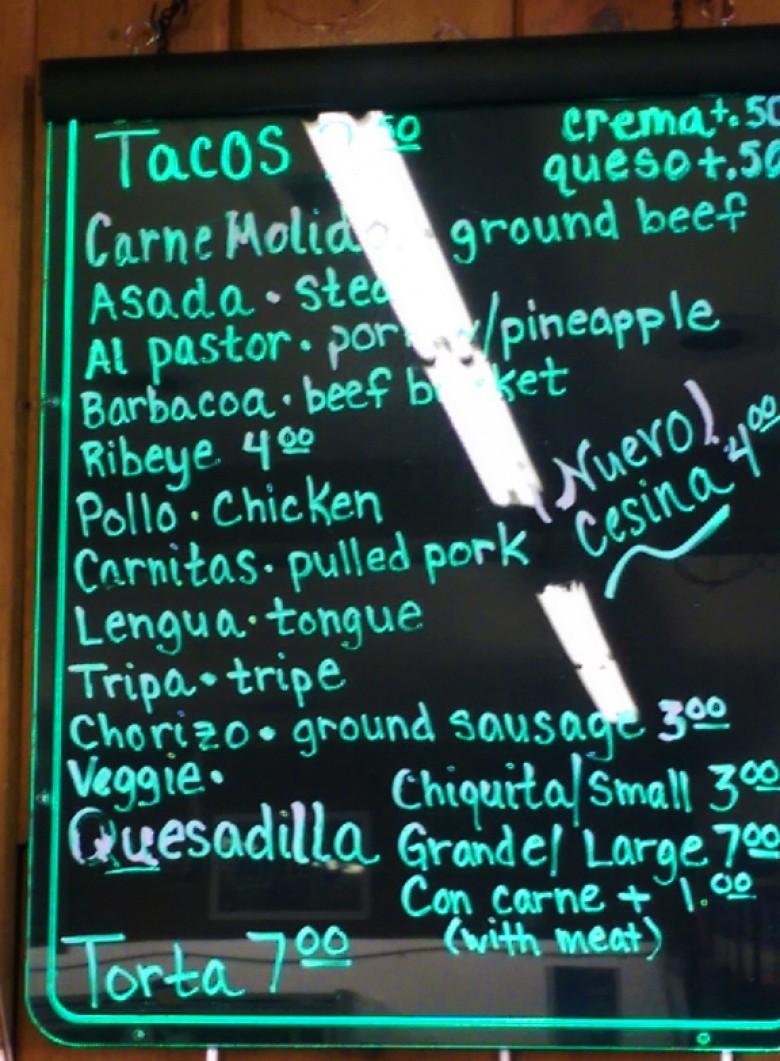 Tacos
crema +.50
queso +.50
Carne Molida · ground beef
Asada · steak
Al pastor · pork w/pineapple
Barbacoa · beef brisket
Ribeye 4.00
¡Nuevo!
Cesina 4.00
Pollo · Chicken
Carnitas · pulled pork
Lengua · tongue
Tripa · tripe
Chorizo · ground sausage 3.00
Veggie ·
Quesadilla
Chiquita/Small 3.00
Grande/Large 7.00
Con carne + 1.00
(with meat)
Torta 7.00